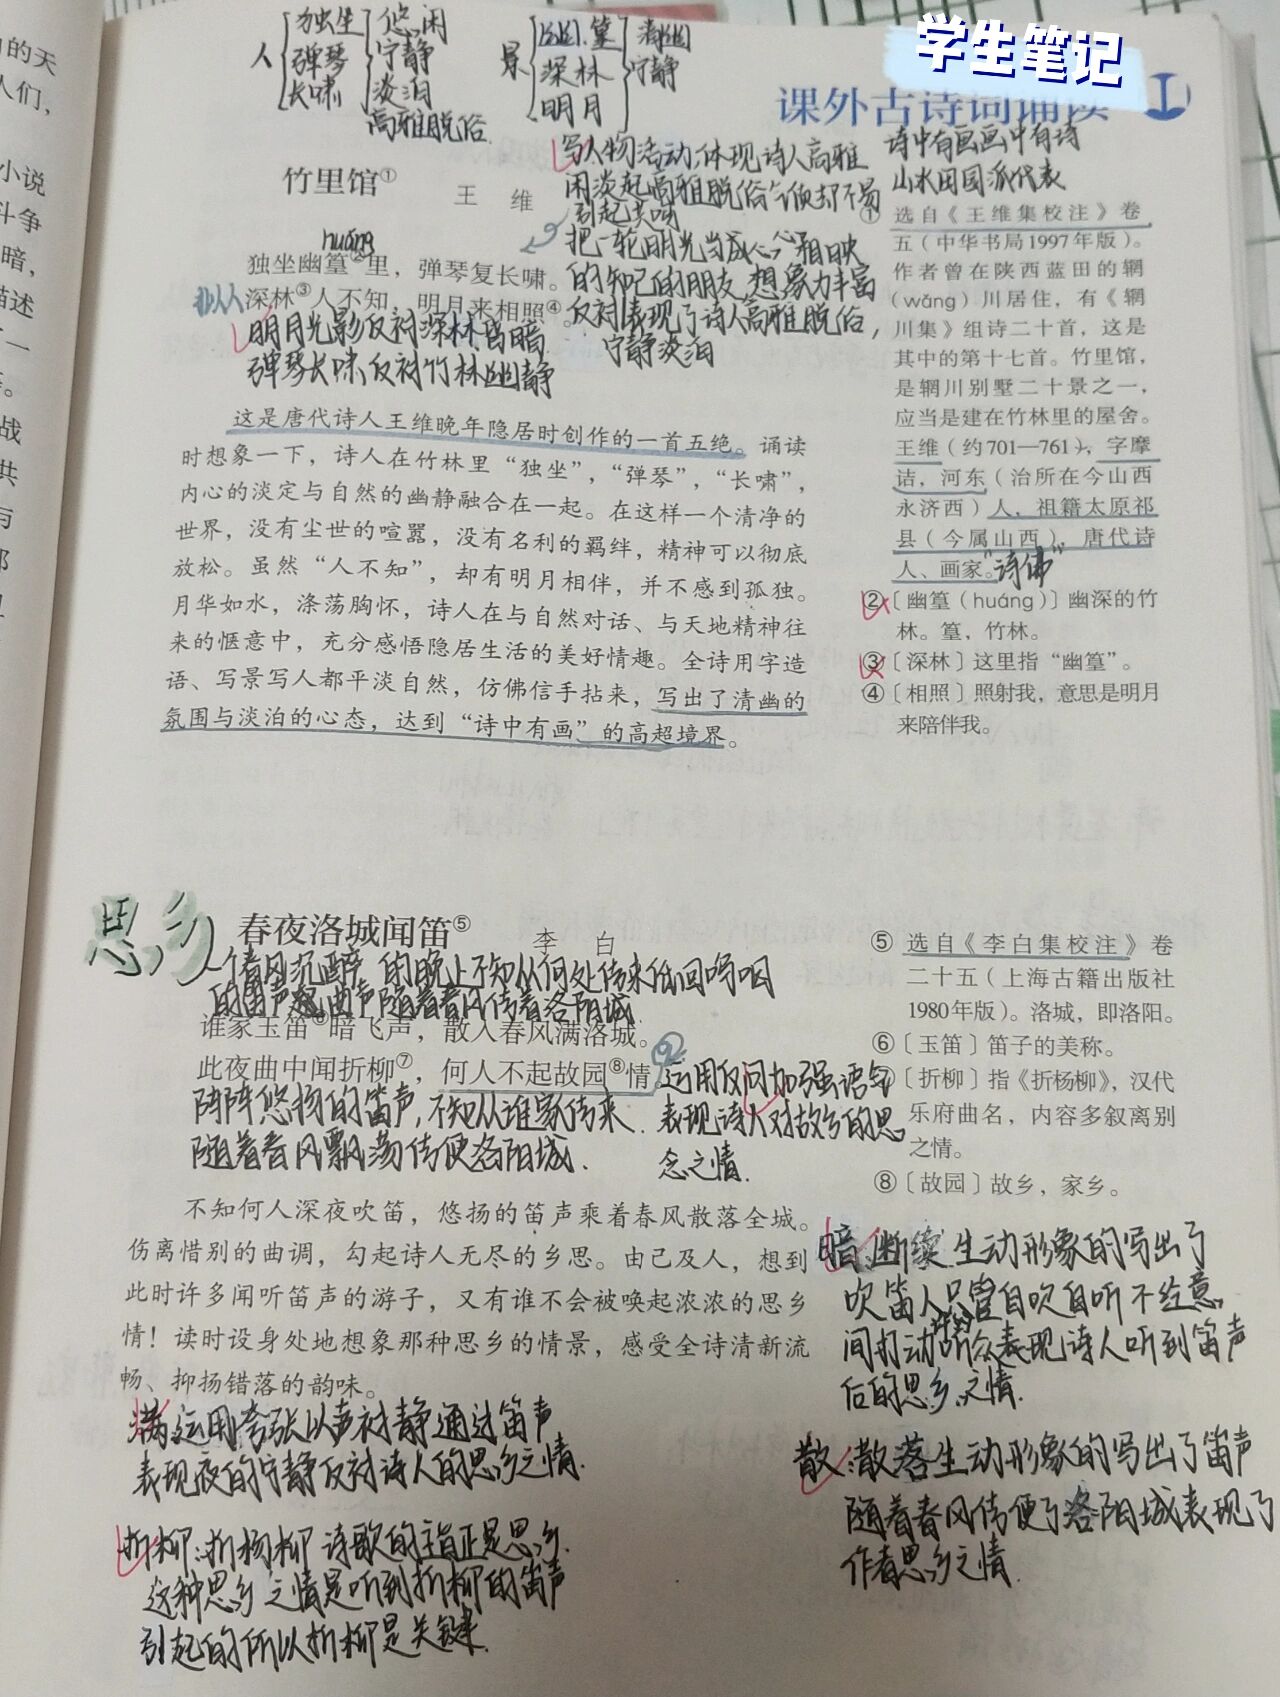 的天
人们，
小说
斗争
暗，
描述
一
。
战
共
与
学生笔记
课外古诗词诵读
人 独坐 弹琴 长啸 悠闲 宁静 淡泊
高雅脱俗
景 幽篁 深林 明月 清幽 宁静
诗中有画画中有诗
山水田园派代表
竹里馆①
王 维
写人物活动,体现诗人高雅
闲淡起高雅脱俗气质却不易
引起共鸣
把一轮明光当成心心相映
的知己的朋友,想象力丰富
反衬表现了诗人高雅脱俗,
宁静淡泊
huáng
独坐幽篁②里，弹琴复长啸。
深林③人不知，明月来相照④。
明月光影反衬深林昏暗
弹琴长啸反衬竹林幽静
这是唐代诗人王维晚年隐居时创作的一首五绝。诵读
时想象一下，诗人在竹林里“独坐”，“弹琴”，“长啸”，
内心的淡定与自然的幽静融合在一起。在这样一个清净的
世界，没有尘世的喧嚣，没有名利的羁绊，精神可以彻底
放松。虽然“人不知”，却有明月相伴，并不感到孤独。
月华如水，涤荡胸怀，诗人在与自然对话、与天地精神往
来的惬意中，充分感悟隐居生活的美好情趣。全诗用字造
语、写景写人都平淡自然，仿佛信手拈来，写出了清幽的
氛围与淡泊的心态，达到“诗中有画”的高超境界。
① 选自《王维集校注》卷
五（中华书局1997年版）。
作者曾在陕西蓝田的辋
（wǎng）川居住，有《辋
川集》组诗二十首，这是
其中的第十七首。竹里馆，
是辋川别墅二十景之一，
应当是建在竹林里的屋舍。
王维（约701—761），字摩
诘，河东（治所在今山西
永济西）人，祖籍太原祁
县（今属山西），唐代诗
人、画家。“诗佛”
②〔幽篁（huáng）〕幽深的竹
林。篁，竹林。
③〔深林〕这里指“幽篁”。
④〔相照〕照射我，意思是明月
来陪伴我。
思乡
春夜洛城闻笛⑤
李 白
一个春风沉醉的晚上不知从何处传来低回呜咽
的笛声起,曲声随着春风传着洛阳城
谁家玉笛⑥暗飞声，散入春风满洛城。
此夜曲中闻折柳⑦，何人不起故园⑧情
阵阵悠扬的笛声,不知从谁家传来
随着春风飘荡传便洛阳城.
运用反问加强语气
表现诗人对故乡的思
念之情.
不知何人深夜吹笛，悠扬的笛声乘着春风散落全城。
伤离惜别的曲调，勾起诗人无尽的乡思。由己及人，想到
此时许多闻听笛声的游子，又有谁不会被唤起浓浓的思乡
情！读时设身处地想象那种思乡的情景，感受全诗清新流
畅、抑扬错落的韵味。
满:运用夸张以声衬静通过笛声
表现夜的宁静反衬诗人的思乡之情.
折柳:折杨柳 诗歌的主旨正是思乡.
这种思乡之情是听到折柳的笛声
引起的所以折柳是关键.
⑤ 选自《李白集校注》卷
二十五（上海古籍出版社
1980年版）。洛城，即洛阳。
⑥〔玉笛〕笛子的美称。
⑦〔折柳〕指《折杨柳》，汉代
乐府曲名，内容多叙离别
之情。
⑧〔故园〕故乡，家乡。
暗:断续 生动形象的写出了
吹笛人只管自吹自听不经意
间打动听众表现诗人听到笛声
后的思乡之情.
散:散落生动形象的写出了笛声
随着春风传便了洛阳城表现了
作者思乡之情.